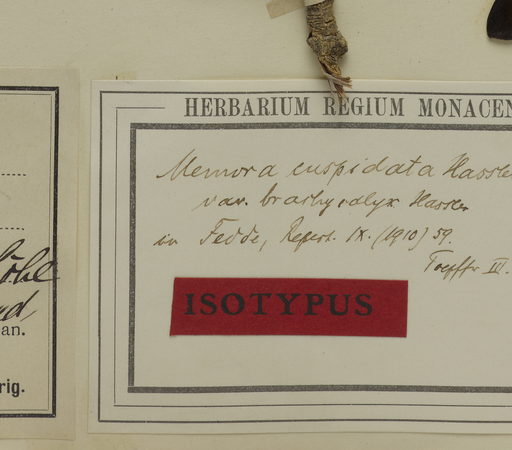 HERBARIUM REGIUM MONACEN
Memora cuspidata Hassler
var. brachycalyx Hassler
in Fedde, Repert. IX. (1910) 59.
ISOTYPUS
an.
rig.